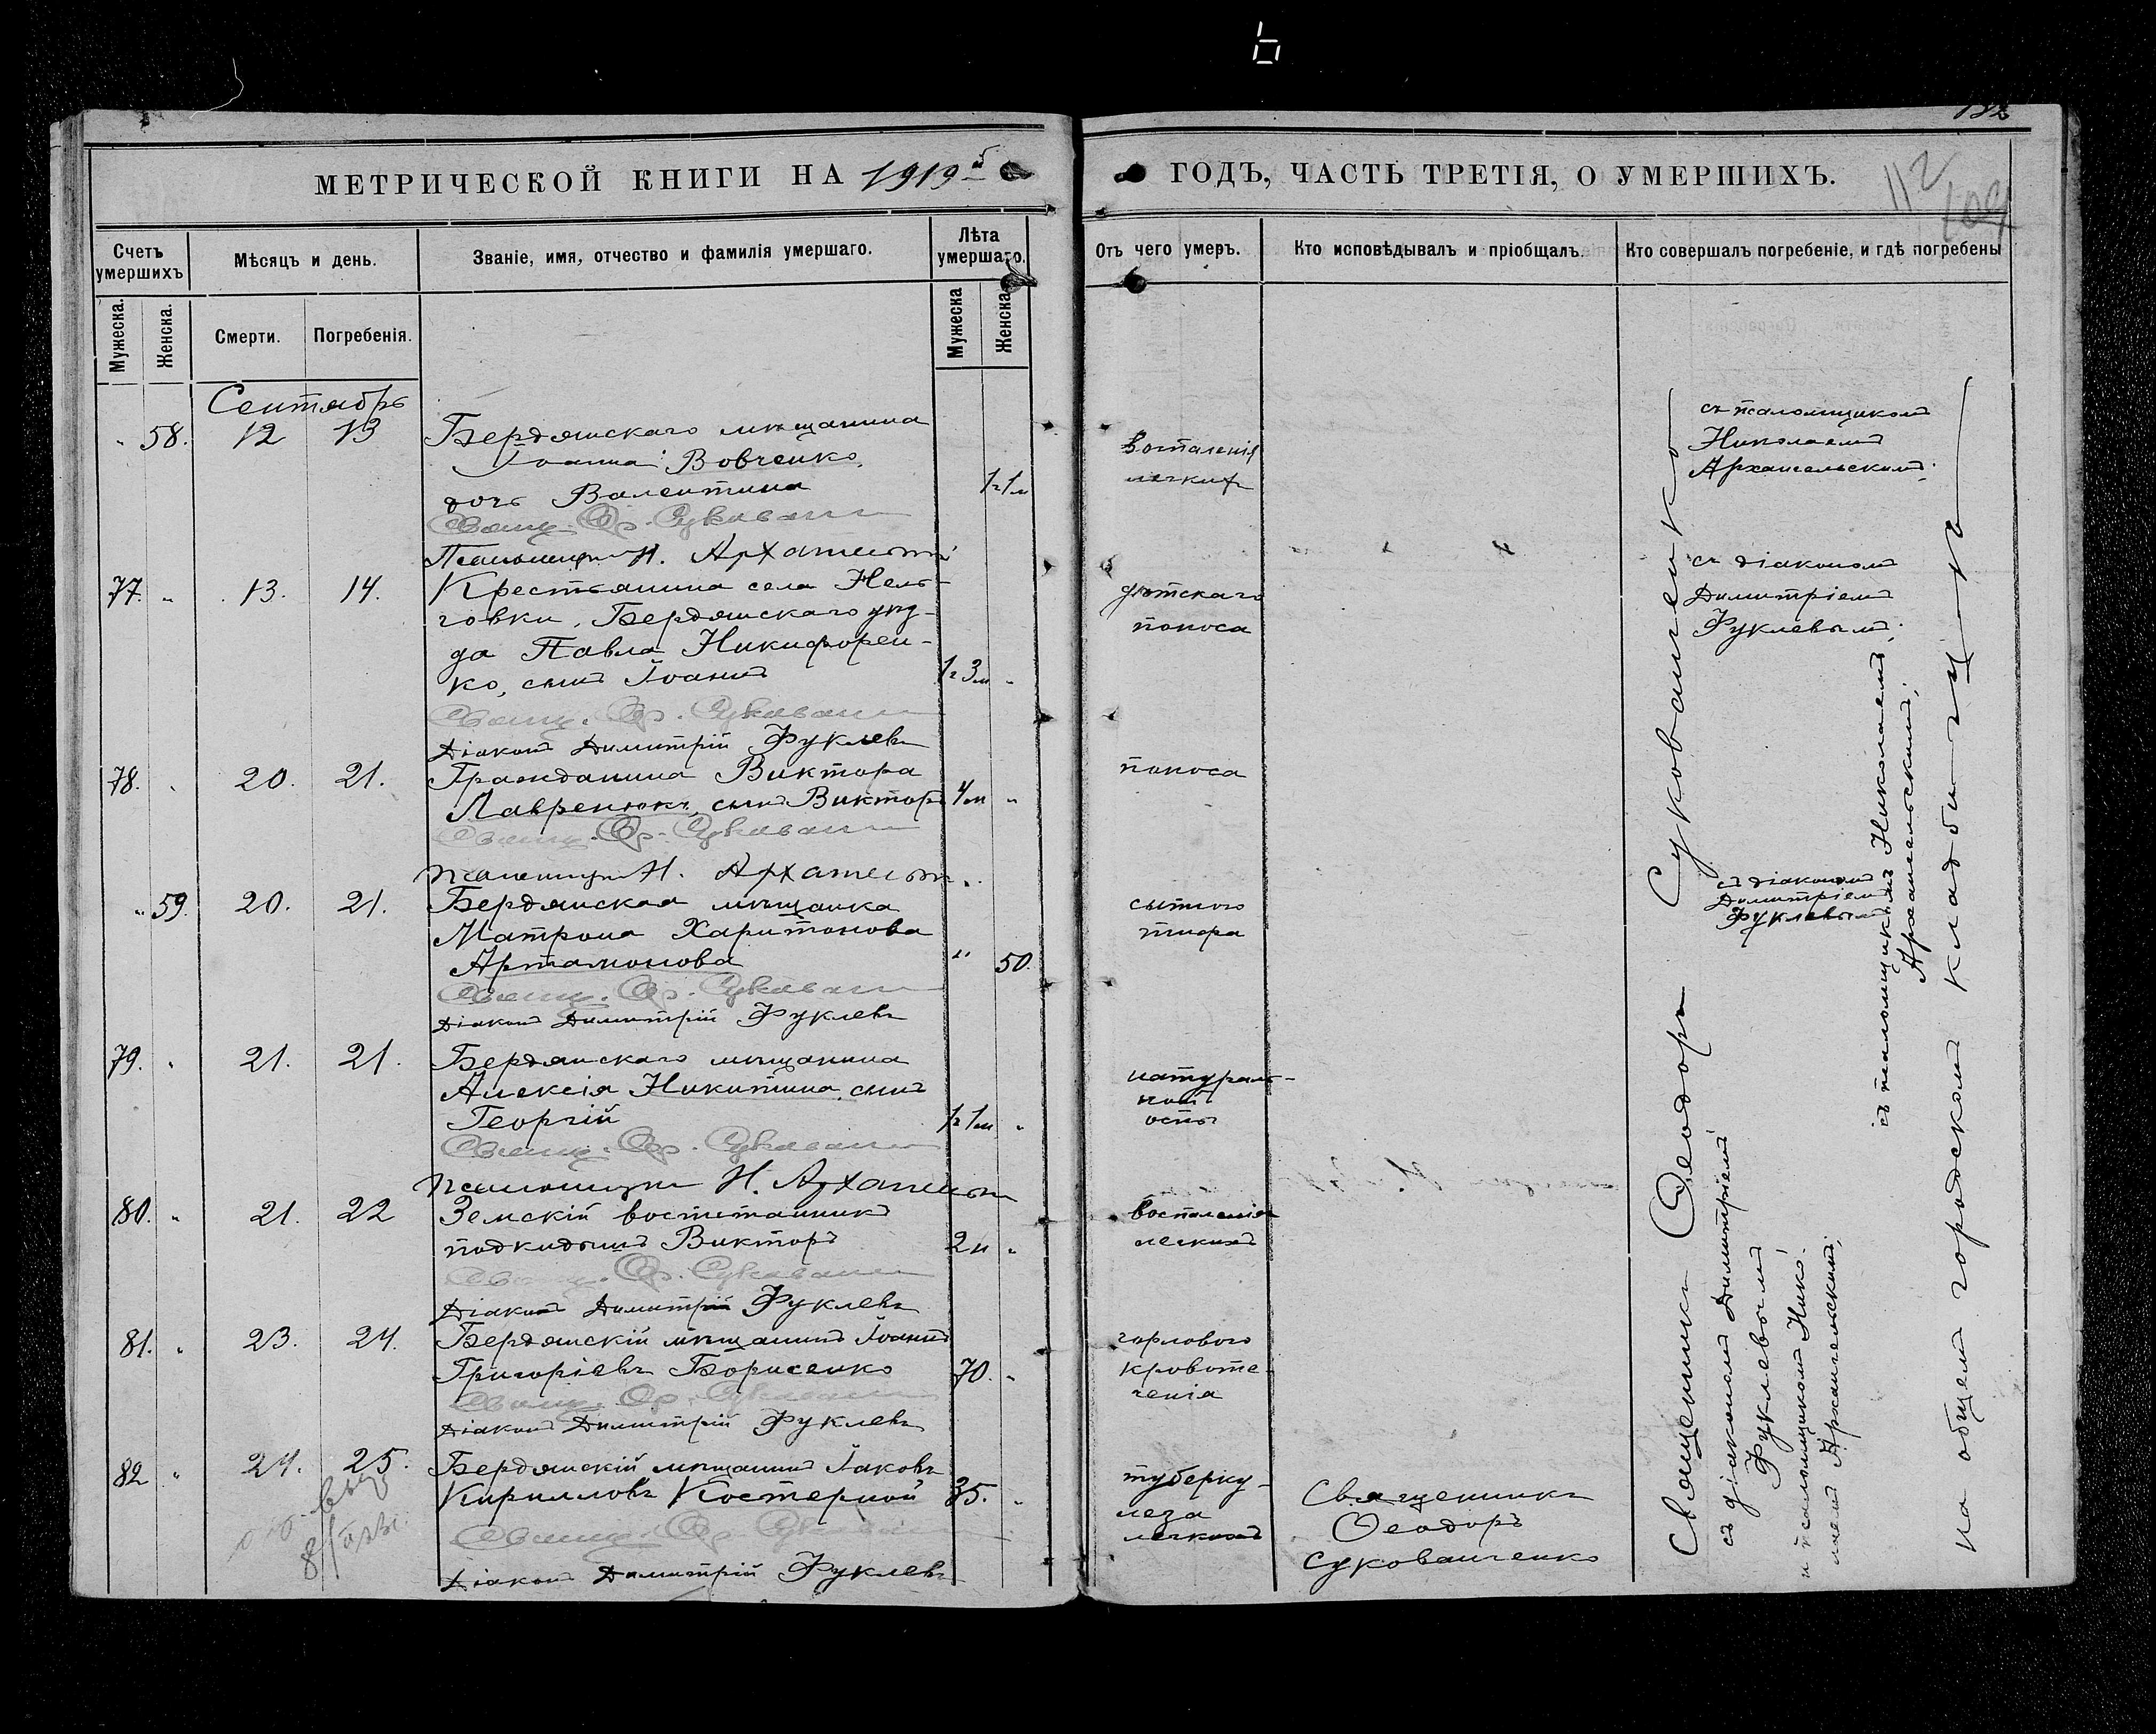 132
МЕТРИЧЕСКОЙ КНИГИ НА 1919й
ГОДЪ, ЧАСТЬ ТРЕТІЯ, О УМЕРШИХЪ.
112
109
Счетъ умершихъ
Мѣсяцъ и день.
Званіе, имя, отчество и фамилія умершаго.
Лѣта умершаго.
Мужеска.
Женска.
Смерти.
Погребенія.
Мужеска
Женска
Отъ чего умеръ.
Кто исповѣдывалъ и пріобщалъ.
Кто совершалъ погребеніе, и гдѣ погребены
Сентябрь
58. 12 13
Бердянскаго мѣщанина
Іоанна Вовченко,
дочь Валентина
1г 1м
Свящ. Ѳ. Сукован
Псаломщ. Н. Архангельскі
воспаленія
легкихъ
съ псаломщикомъ
Николаемъ
Архангельскимъ;
77. " 13. 14.
Крестьянина села Нель-
говки, Бердянскаго уѣз-
да Павла Никифорен-
ко, сынъ Іоаннъ
1г 3м "
Свящ. Ѳ. Сукован
Діаконъ Димитрій Фуклевъ
дѣтскаго
поноса
съ діакономъ
Димитріемъ
Фуклевымъ;
78. " 20. 21.
Гражданина Виктора
Лавренюкъ, сынъ Викторъ
4м "
Свящ. Ѳ. Сукован
псаломщ. Н. Архангельск.
поноса
съ псаломщикомъ Николаемъ
Архангельскимъ;
" 59. 20. 21.
Бердянская мѣщанка
Матрона Харитонова
Артамонова
" 50.
Свящ. Ѳ. Сукован
Діаконъ Димитрій Фуклевъ
сыпного
тифа
съ діакономъ
Димитріемъ
Фуклевымъ
79. " 21. 21.
Бердянскаго мѣщанина
Алексія Никитина, сынъ
Георгій
1г 1м "
Свящ. Ѳ. Сукован
псаломщ. Н. Архангельск
натураль-
ной
оспы
80. " 21. 22
Земскій воспитанникъ
подкидышъ Викторъ
2н "
Свящ. Ѳ. Сукован
Діаконъ Димитрій Фуклевъ
воспаленія
легкихъ
81. " 23. 24.
Бердянскій мѣщанинъ Іоаннъ
Григоріевъ Борисенко
70. "
Свящ. Ѳ. Сукован
Діаконъ Димитрій Фуклевъ
горлового
кровоте-
ченія
82 " 24. 25.
Бердянскій мѣщанинъ Іаковъ
Кирилловъ Костерной
35. "
Свящ. Ѳ. Сукован
Діаконъ Димитрій Фуклевъ
туберку-
леза
легкихъ
Священникъ
Ѳеодоръ
Сукованченко
Священникъ Ѳеодоръ Сукованченко
съ діакономъ Димитріемъ
Фуклевымъ
и псаломщикомъ Нико-
лаемъ Архангельскимъ;
на общемъ городскомъ кладбищѣ